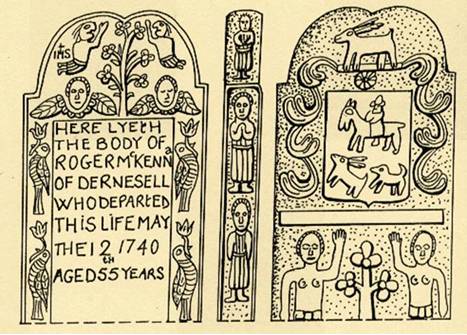 IHS
HERE LYETH
THE BODY OF
ROGER McKENNA
OF DERNESELL
WHO DEPARTED
THIS LIFE MAY
THE 12th 1740
AGED 55 YEARS